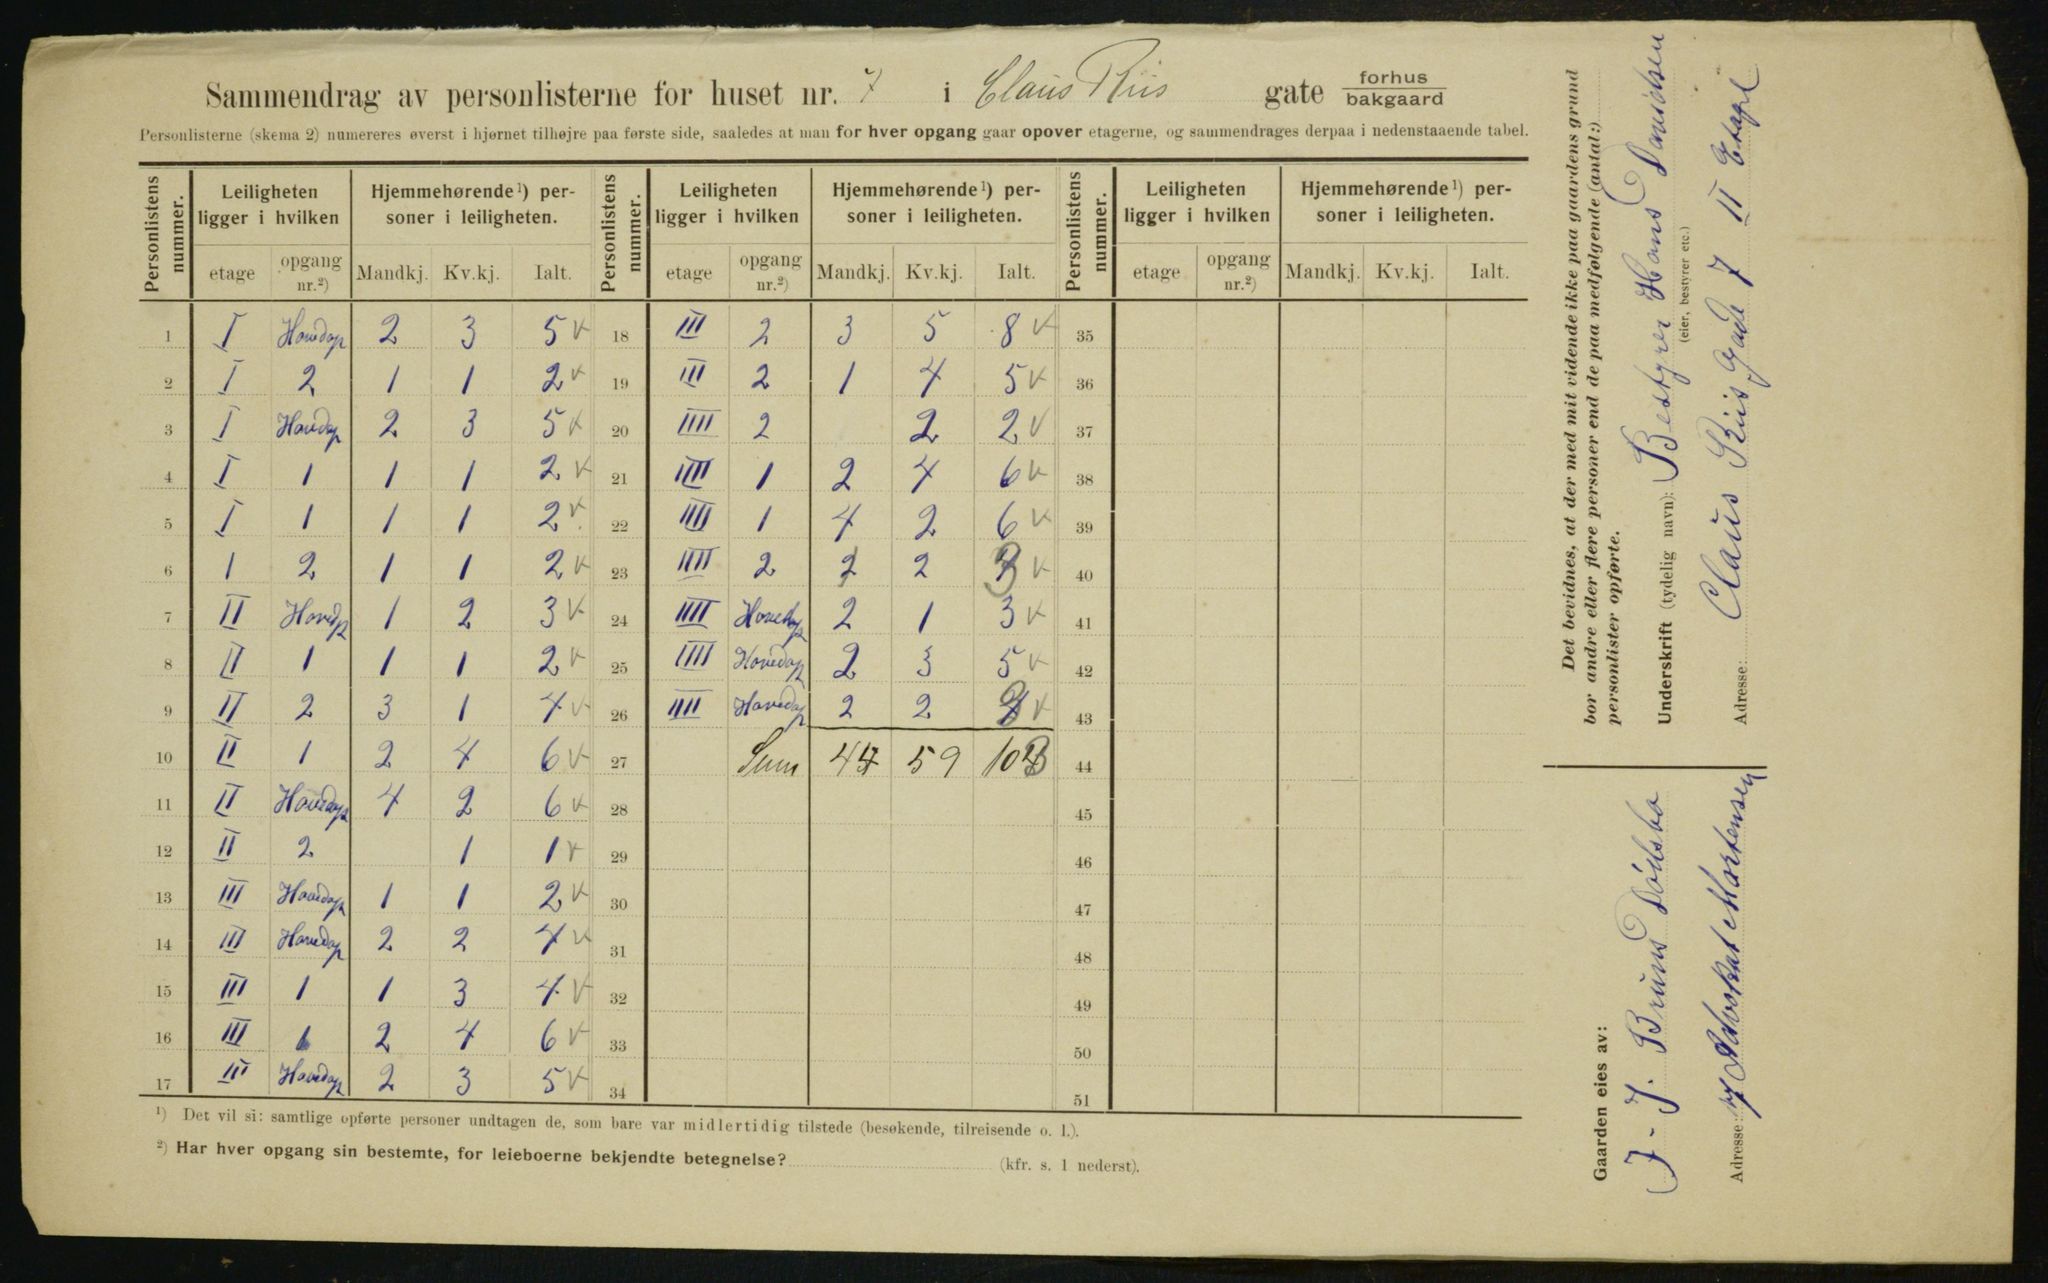 Sammendrag av personlisterne for huset nr. 7 i Claus Riis gate forhus bakgaard
Personlisterne (skema 2) numereres øverst i hjørnet tilhøjre paa første side, saaledes at man for hver opgang gaar opover etagerne, og sammendrages derpaa i nedenstaaende tabel.
Personlistens nummer. Leiligheten ligger i hvilken Hjemmehørende ¹) personer i leiligheten. Personlistens nummer. Leiligheten ligger i hvilken Hjemmehørende ¹) personer i leiligheten. Personlistens nummer. Leiligheten ligger i hvilken Hjemmehørende ¹) personer i leiligheten.
etage opgang nr.²) Mandkj. Kv.kj. Ialt. etage opgang nr.²) Mandkj. Kv.kj. Ialt. etage opgang nr.²) Mandkj. Kv.kj. Ialt.
1 I Hovedop 2 3 5 v 18 III 2 3 5 8 v 35
2 I 2 1 1 2 v 19 III 2 1 4 5 v 36
3 I Hovedop 2 3 5 v 20 IIII 2 2 2 v 37
4 I 1 1 1 2 v 21 IIII 1 2 4 6 v 38
5 I 1 1 1 2 v 22 IIII 1 4 2 6 v 39
6 I 2 1 1 2 v 23 IIII 2 2 3 v 40
7 II Hovedop 1 2 3 v 24 IIII Hovedop 2 1 3 v 41
8 II 1 1 1 2 v 25 IIII Hovedop 2 3 5 v 42
9 II 2 3 1 4 v 26 IIII Hovedop 2 2 v 43
10 II 1 2 4 6 v 27 Sum 44 59 103 44
11 II Hovedop 4 2 6 v 28 45
12 II 2 1 1 v 29 46
13 III Hovedop 1 1 2 v 30 47
14 III Hovedop 2 2 4 v 31 48
15 III 1 1 3 4 v 32 49
16 III 1 2 4 6 v 33 50
17 III Hovedop 2 3 5 v 34 51
¹) Det vil si: samtlige opførte personer undtagen de, som bare var midlertidig tilstede (besøkende, tilreisende o. l.).
²) Har hver opgang sin bestemte, for leieboerne bekjendte betegnelse? (kfr. s. 1 nederst).
Det bevidnes, at der med mit vidende ikke paa gaardens grund
bor andre eller flere personer end de paa medfølgende (antal:)
personlister opførte.
Underskrift (tydelig navn): Bestyrer Hans Davidsen
(eier, bestyrer etc.)
Adresse: Claus Riis Gade 7 II Etage
Gaarden eies av:
J. Bruns Dödsbo
Adresse: Advokat Mortensen